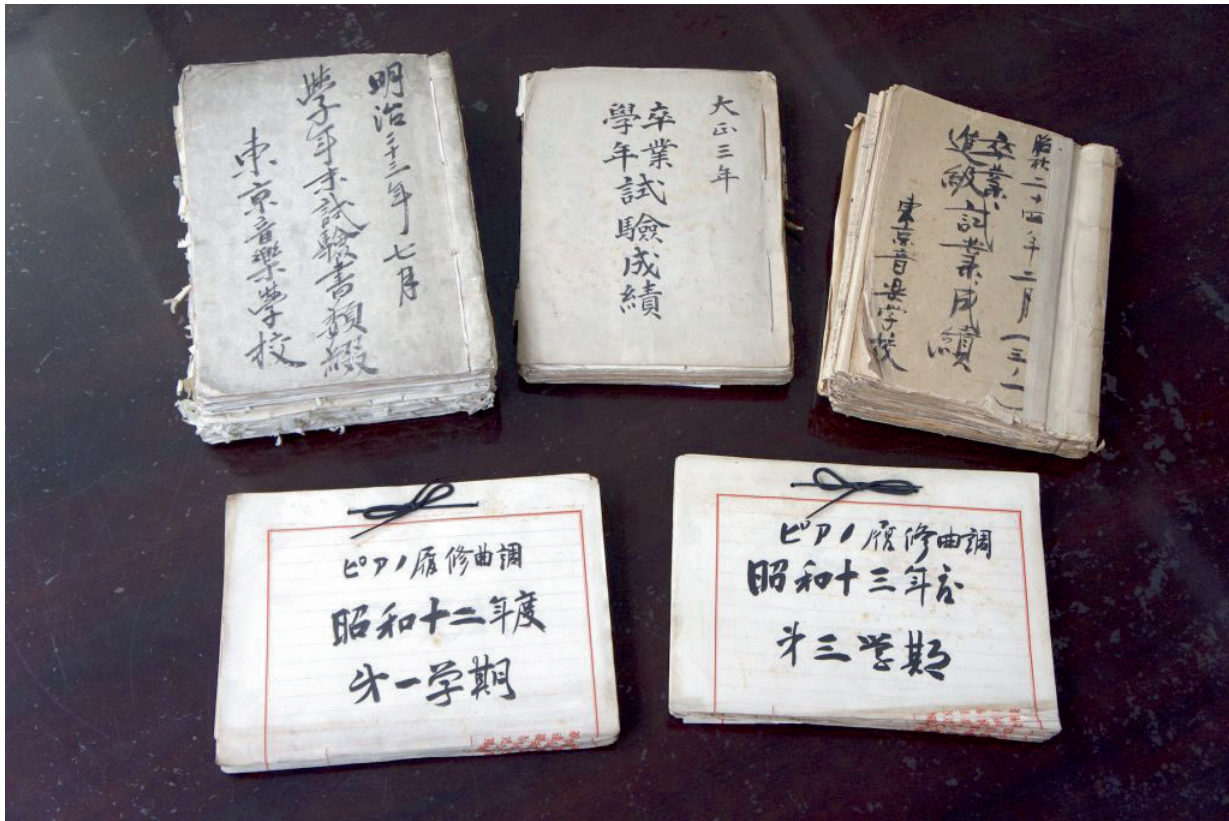 明治二十三年七月
學年末試験書類綴
東京音樂學校
大正三年
卒業試驗成績
學年
昭和二十四年二月(三ノ一)
卒業
進級試業成績
東京音楽学校
ピアノ履修曲調
昭和十二年度
才一学期
ピアノ履修曲調
昭和十三年度
才三学期